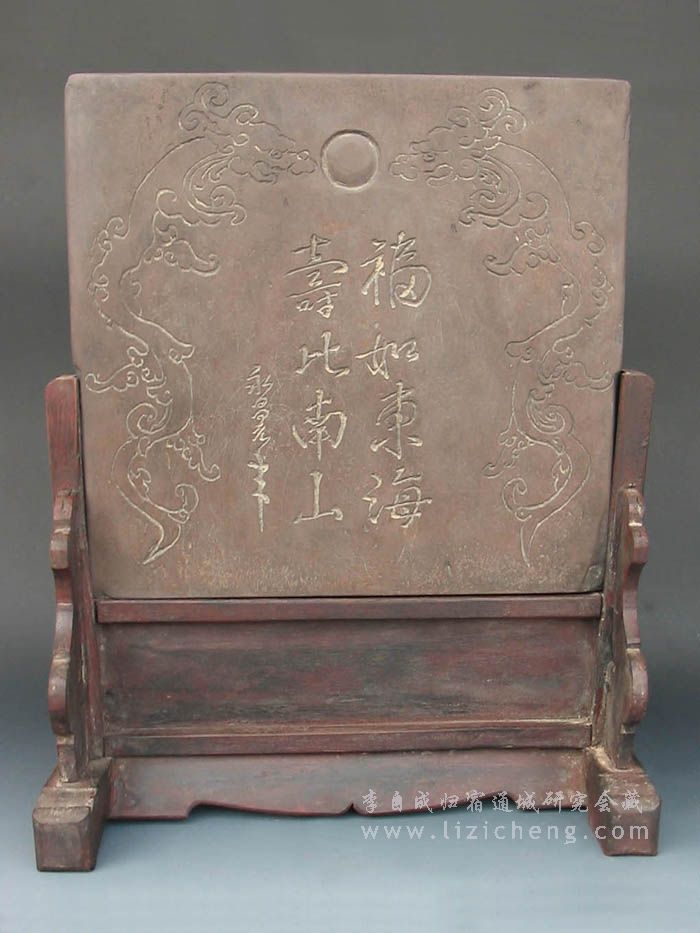 福如東海
壽比南山
永昌元年
李自成归宿通城研究会藏
www.lizicheng.com